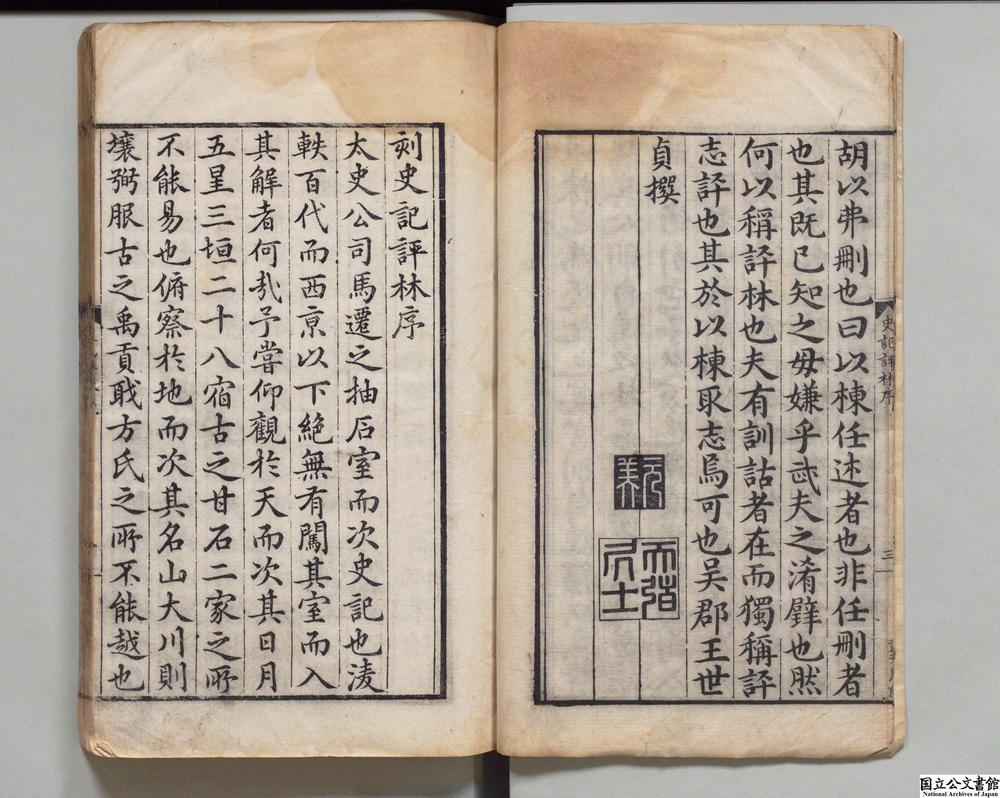 胡以弗刪也曰以棟任述者也非任刪者
也其既已知之毋嫌乎珷夫之淆璧也然
何以稱評林也夫有訓詁者在而獨稱評
志評也其於以棟取志焉可也吳郡王世
貞撰
元美
天弢居士
史記評林序
三
刻史記評林序
太史公司馬遷之抽石室而次史記也淩
軼百代而西京以下絕無有闖其室而入
其解者何㢤予嘗仰觀於天而次其日月
五星三垣二十八宿古之甘石二家之所
不能易也俯察於地而次其名山大川則
壤弼服古之禹貢職方氏之所不能越也
国立公文書館
National Archives of Japan